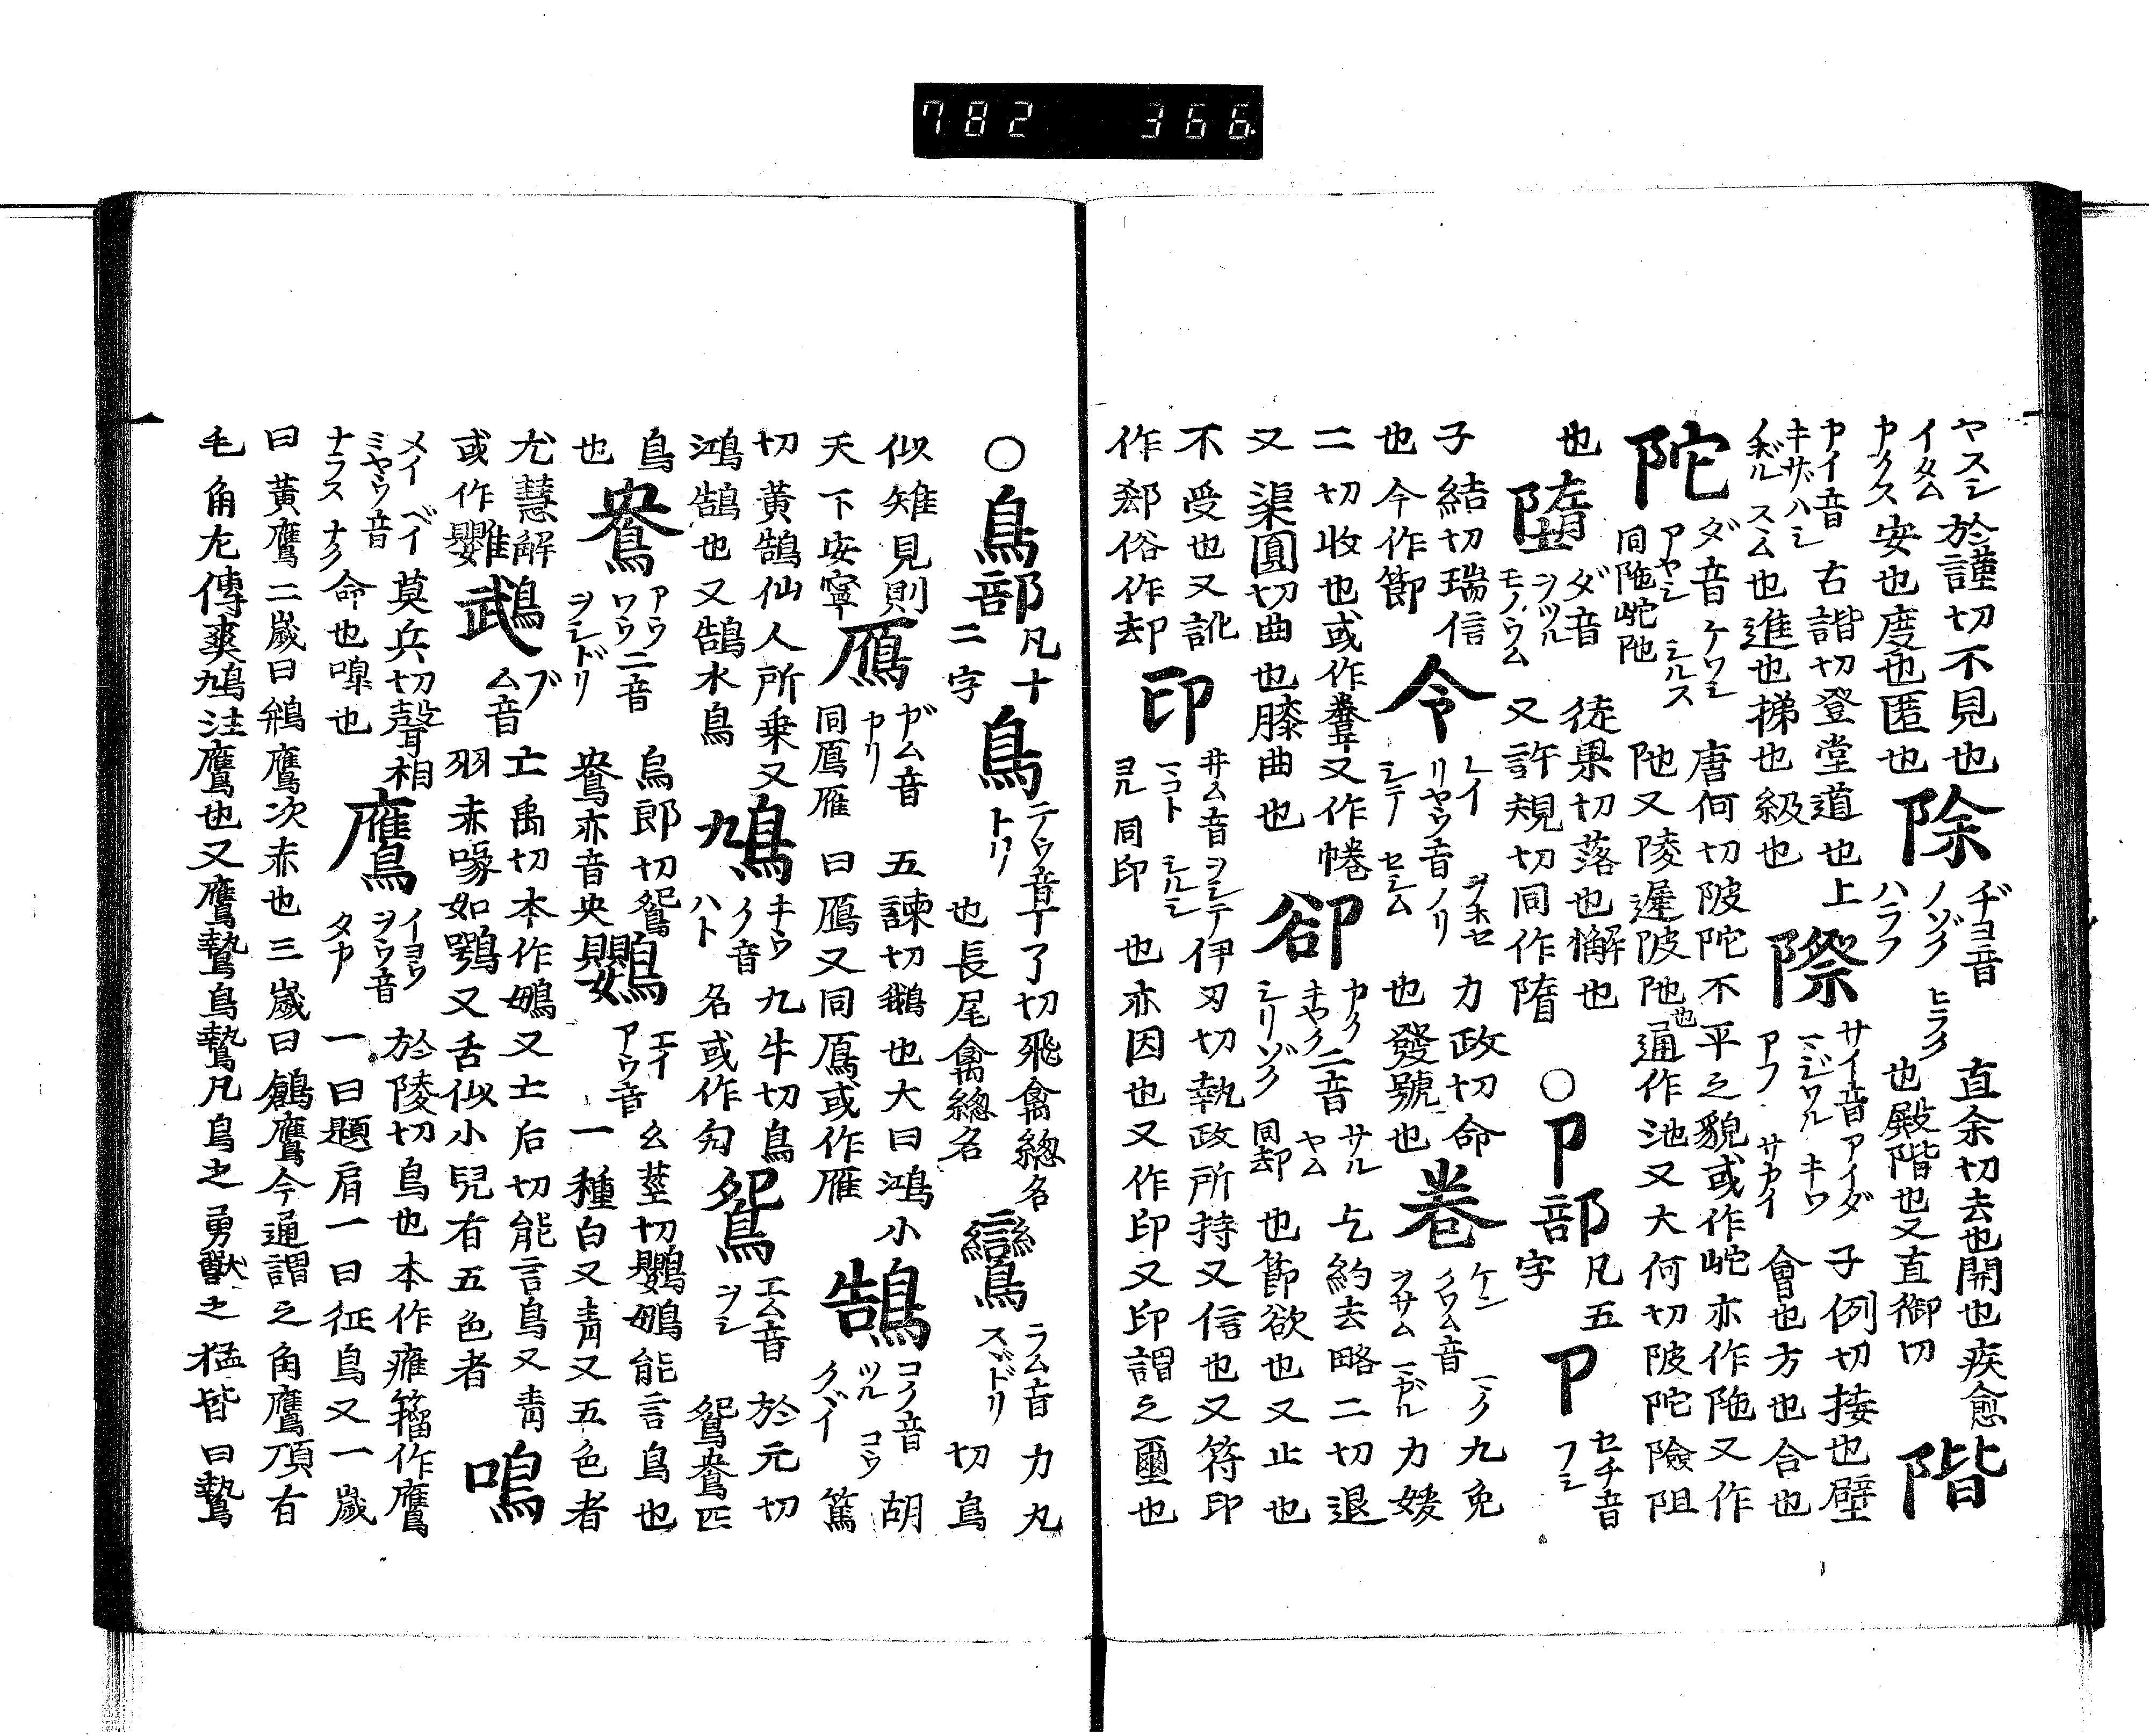 782 366
ヤスシ 於謹切不見也 除 ヂヨ音 直余切去也開也疾愈
イタム
カクス 安也度也匿也 ノゾク ハラフ ヒラク 也殿階也又直御切 階
カイ音 古諧切登堂道也上 際 サイ音 アイダ 子例切接也壁
キザハシ
ノボル スム也進也梯也級也 マジワル キワ アフ サカイ 會也方也合也
陀 ダ音 ケワシ 唐何切陂陀不平之貌或作岮亦作陁又作
アヤシ シルス
同陁岮阤 阤又陵遲陂阤也通作池又大何切陂陀險阻
也 墮 ダ音 徒果切落也懈也 ○卩部 凡五字 卩 セチ音 フシ
ヲツル
モノウム 又許規切同作隋
子結切瑞信 令 レイ リヤウ音 ノリ ヲホセ 力政切命 卷 ケン クワム音 マク 九免
也今作節 シテ セシム 也發號也 ヲサム マガル 力媛
二切收也或作弮又作惓 卻 カク キヤク二音 サル 乞約去略二切退
又渠圓切曲也膝曲也 シリゾク ヤム 同却 也節欲也又止也
不受也又訛 印 井ム音 ヲシテ 伊刃切執政所持又信也又符印
作郄俗作却 マコト シルシ ヨル 同印 也亦因也又作印又印謂之璽也
○鳥部 凡十二字 鳥 テウ音 丁了切飛禽總名 鸞 ラム音 力丸
トリ 也長尾禽總名 スズドリ 切鳥
似雉見則 鴈 ガム音 五諫切鵝也大曰鴻小 鵠 コク音 胡
天下安寧 カリ 同鳫雁 曰鴈又同鳫或作雁 ツル コウ クグイ 篤
切黄鵠仙人所乗又 鳩 キウ ク音 九牛切鳥 鴛 エム音 於元切
鴻鵠也又鵠水鳥 ハト 名或作勼 ヲシ 鴛鴦匹
鳥也 鴦 アウ ワウ二音 烏郎切鴛 鸚 エイ アウ音 幺莖切鸚鵡能言鳥也
ヲシドリ 鴦亦音央 一種白又青又五色者
尤慧解 鵡 ブ ム音 亡禹切本作䳇又士后切能言鳥又青 鳴
或作䳇 羽赤喙如鶚又舌似小兒有五色者
メイ ベイ ミヤウ音 莫兵切聲相 鷹 イヨウ ヲウ音 於陵切鳥也本作䧹籀作鷹
ナラス ナク 命也嘷也 タカ 一曰題肩一曰征鳥又一歳
曰黄鷹二歳曰鷹次赤也三歳曰鶬鷹今通謂之角鷹頂有
毛角左傳爽鳩注鷹也又鷹鷙鳥鷙凡鳥之勇獸之猛皆曰鷙